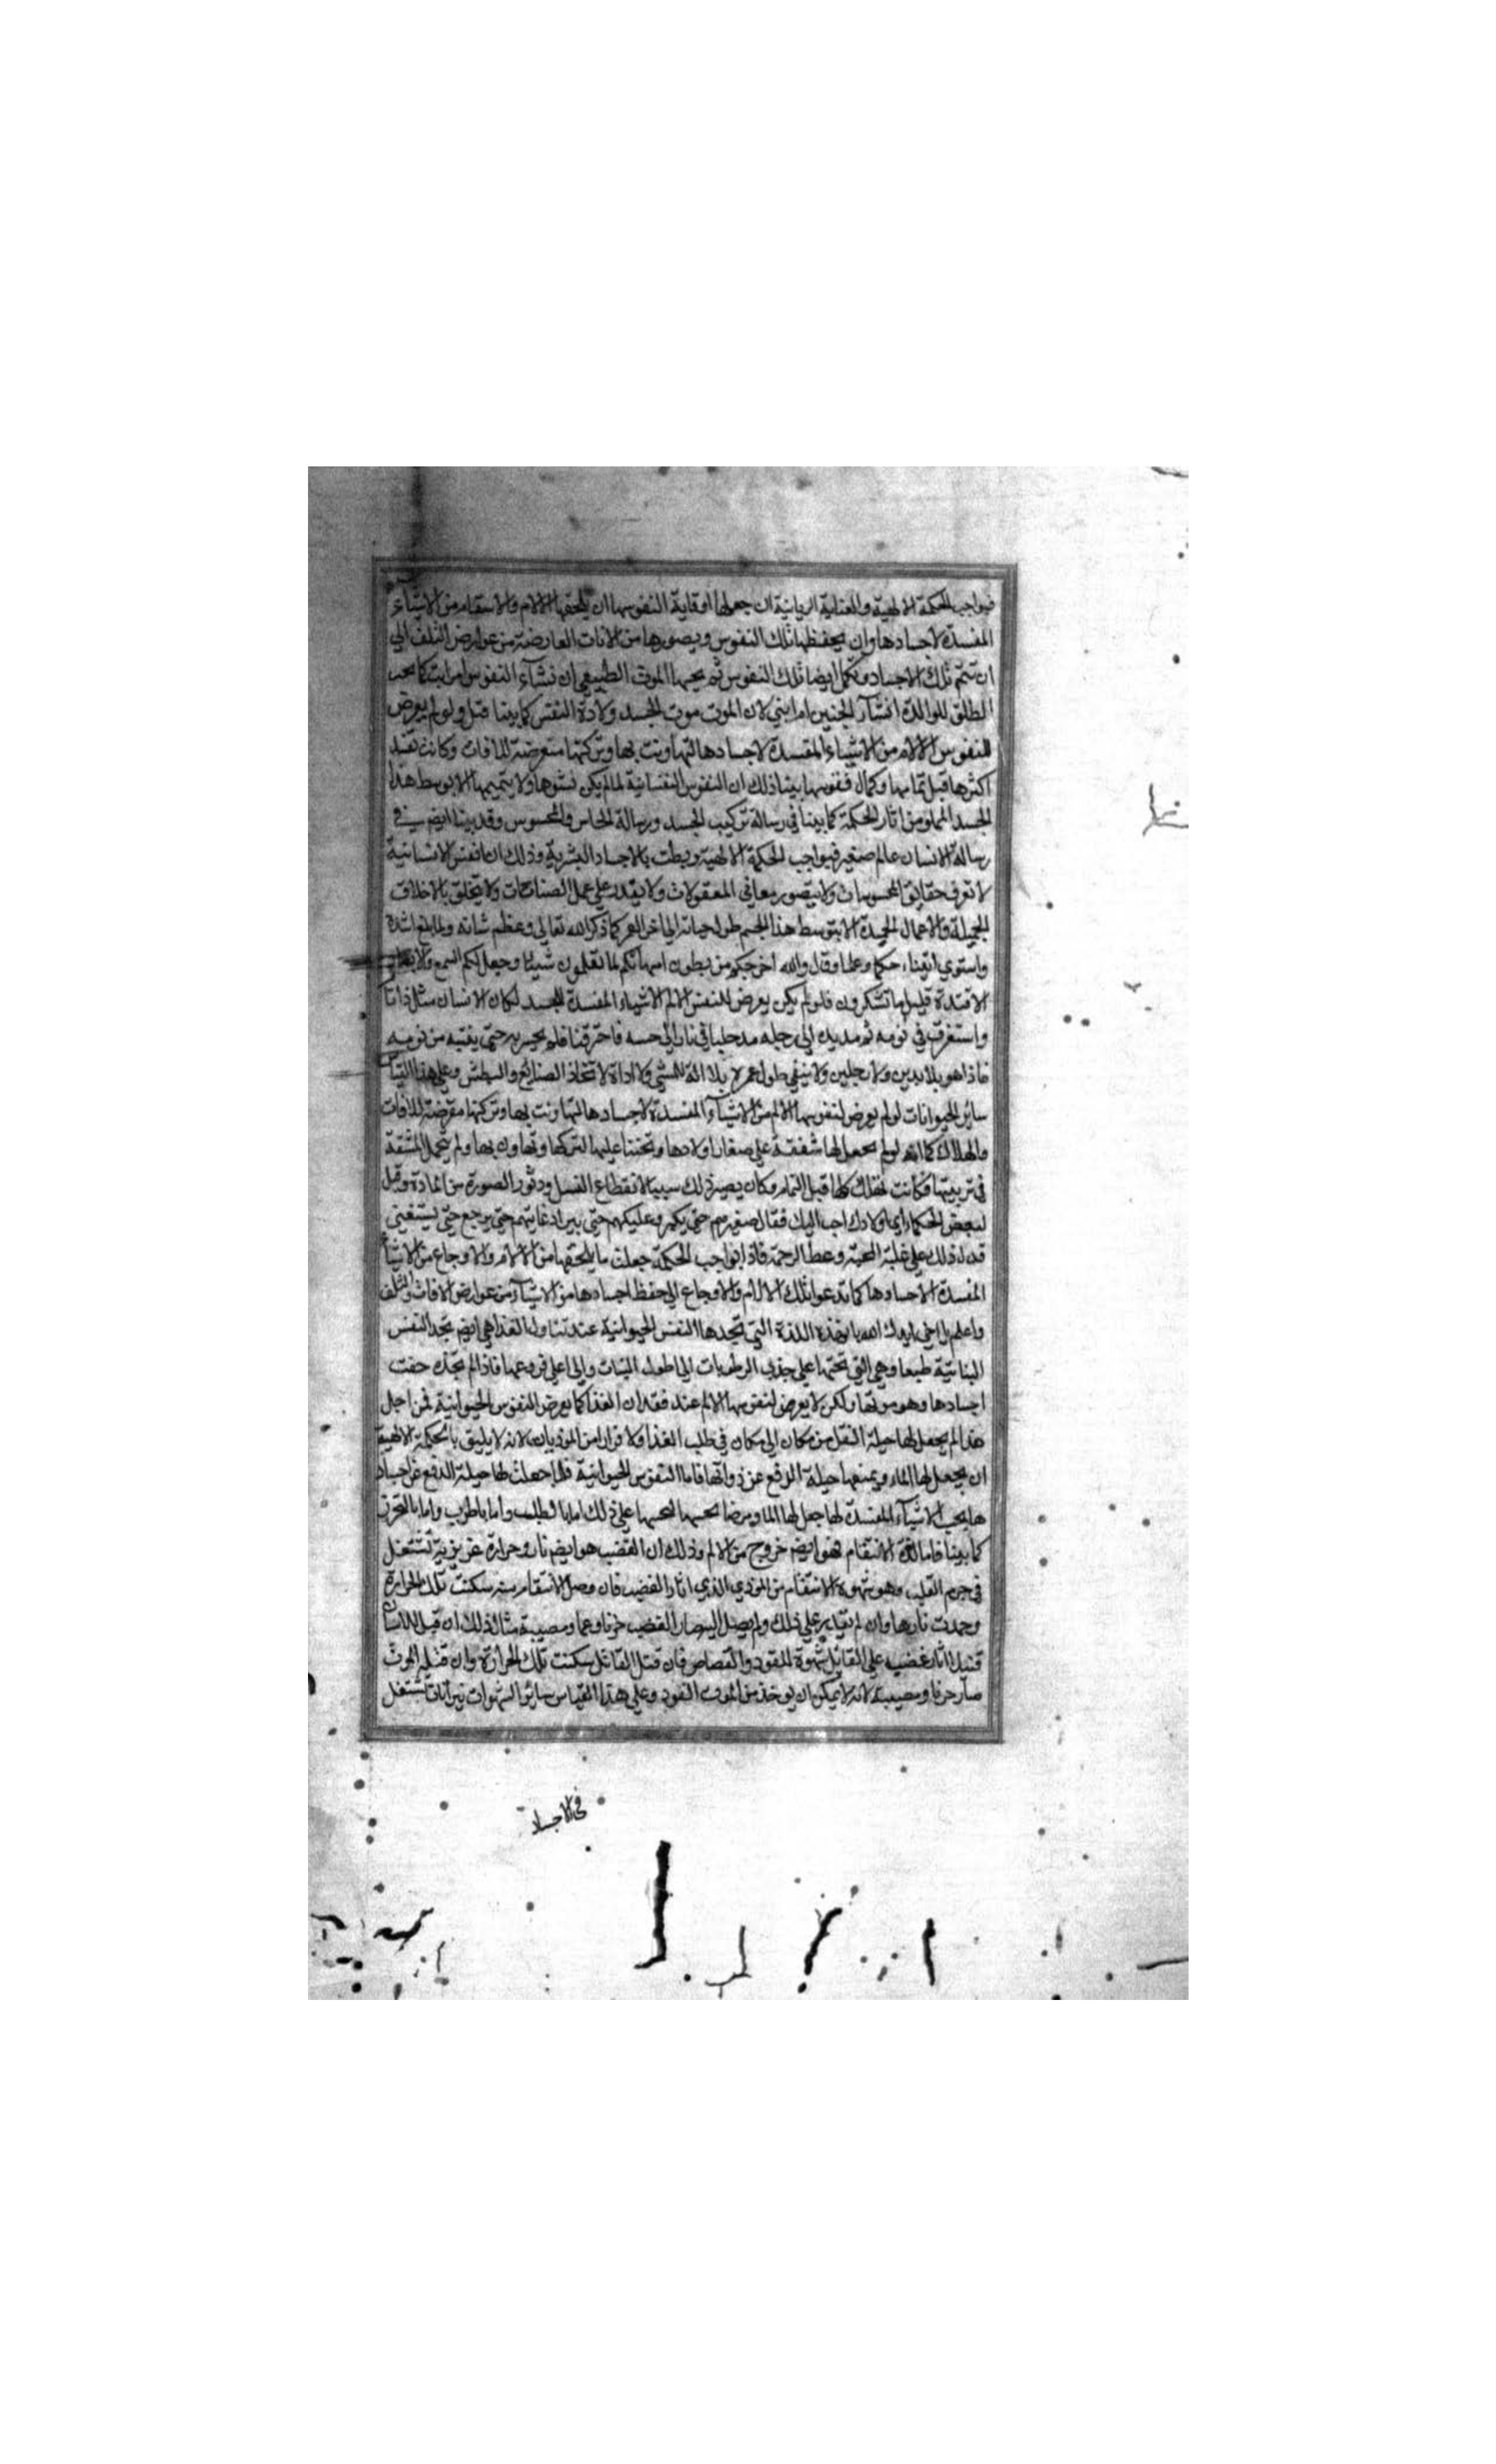 فبواجب الحكمة الالهية والعناية الربانية ان جعل لها اوقاية النفوسها ان يلحقها الآلام والاسقام من الاشياء
المفسدة لاجسادها وان يحفظها تلك النفوس ويصورها من الافات العارضة من عوارض التلف الي
ان تتم تلك الاجساد وتكمل ايضا تلك النفوس ثم يجيها الموت الطبيعي ان نشاء النفوس ام ابت كما يجب
الطلق للوالدة انشآر الجنين ام ابني لان الموت موت الجسد ولادة النفس كما بينا قبل ولو لم يعرض
للنفوس الآلام من الاشياء المفسدة لاجسادها لتهاونت بها وتركتها متعرضة للافات وكانت تفسد
اكثرها قبل تمامها وكمال نفوسها بينا ذلك ان النفوس النفسانية لما لم يكن نشوها ولا تتميمها الا بوسط هذا
الجسد المملو من اثار الحكمة كما بينا في رسالة تركيب الجسد ورسالة الحاس والمحسوس وقد بينا ايضم في
رسالة الانسان عالم صغير فبواجب الحكمة الالهية ربطت بالاجساد البشرية وذلك ان انفس الانسانية
لا تعرف حقايق المحسوسات ولا يتصور معاني المعقولات ولا يقدر علي عمل الصناعات ولا يتخلق بالاخلاق
الجميلة والاعمال الحميدة الا بتوسط هذا الجسم طول حياته الي اخر العمر كما ذكر الله تعالي وعظم شانه ولما بلغ اشده
واستوي اتيناه حكما وعلما وقال والله اخرجكم من بطون امهاتكم لما تعلمون شيئا وجعل لكم السمع والابصار و
الافئدة قليلا ما تشكرون فلو لم يكن يعرض للنفس الالم الاشياء المفسدة للجسد لكان الانسان مثل ذا تا
واستغرق في نومه ثم مد يده الي رجله مدخلها في نار الي حسه فاحترقنا فلم يحس به حتي يفتبه من نومه
فاذا هو بلا يدين ولا رجلين ولا يبقي طول عمره بلا الة للمشي ولا اداة لاتخاذ الصنايع والبطش وعلي هذا القياس
ساير الحيوانات لو لم يعرض لنفوسها الالم من الاشيآء المفسدة لاجسادها لتهاونت بها وتركتها معرضة للافات
والهلاك كما انه لو لم يجعل لها شفقة علي صغار اولادها وتحننا عليها لتركها وتهاون بها ولم يتحمل المشقة
في تربيتها فكانت تهلك كلها قبل التمام وكان يصير ذلك سببا لانقطاع النسل ودثور الصورة من المادة وقيل
لبعض الحكماء اي اولادك احب اليك فقال صغيرهم حتي يكبر وعليلهم حتي يبرا وغايبهم حتي يرجع حتي يستغني
فدل ذلك علي غلبة المحبة وعطا الرحمة فاذا بواجب الحكمة جعلت ما يلحقها من الآلام والاوجاع من الاشياء
المفسدة الاجسادها كما تدعوا تلك الالام والاوجاع الي حفظ اجسادها من الاشيآء من عوارض الافات والتلف
واعلم يا اخي ايدك الله بان هذه اللذة التي تجدها النفس الحيوانية عند تناول الغذا هي ايضم تجد النفس
النباتية طبعا وهي التي تحثها علي جذب الرطوبات الي اطول النبات والي اعلي فروعها فاذا لم تجذه جفت
اجسادها وهو موتها ولكن لا يعرض لنفوسها الالم عند فقدان الغذا كما يعرض النفوس الحيوانية فمن اجل
هذا لم يجعل لها حيلة النقل من مكان الي مكان في طلب الغذا ولا فرارا من الموذيات لانه لا يليق بالحكمة الالهية
ان يجعل لها الما ويمنعها حيلة الدفع عن ذواتها فاما النفوس الحيوانية فلما جعلت لها حيلة الدفع عن اجساد
ها يجب الاشيآء المفسدة لها جعل لها الما ومرضا علي ذلك اما بالطلب واما با طرب واما بالتحرز
كما بينا فاما لذة الانتقام فهو ايضم خروج من الالم وذلك ان الغضب هو ايضم نار وحرارة غريزية تشتعل
في جرم القلب وهو شهوة الانتقام من الموذي الذي اثار الغضب فان وصل الانتقام منه سكنت تلك الحرارة
وخمدت نارها وان لم يقدر علي ذلك ولم يصل اليه صار الغضب حزنا وغما ومصيبة مثال ذلك ان قيل للانسان
قتيل اثار غضب علي القاتل شهوة للقود والقصاص فان قتل القاتل سكنت تلك الحرارة وان قتله الموت
صار حزنا ومصيبة لانه لا يمكن ان يوخذ من الموت القود وعلي هذا القياس ساير الشهوات نيرانات تشتعل
في الاجساد